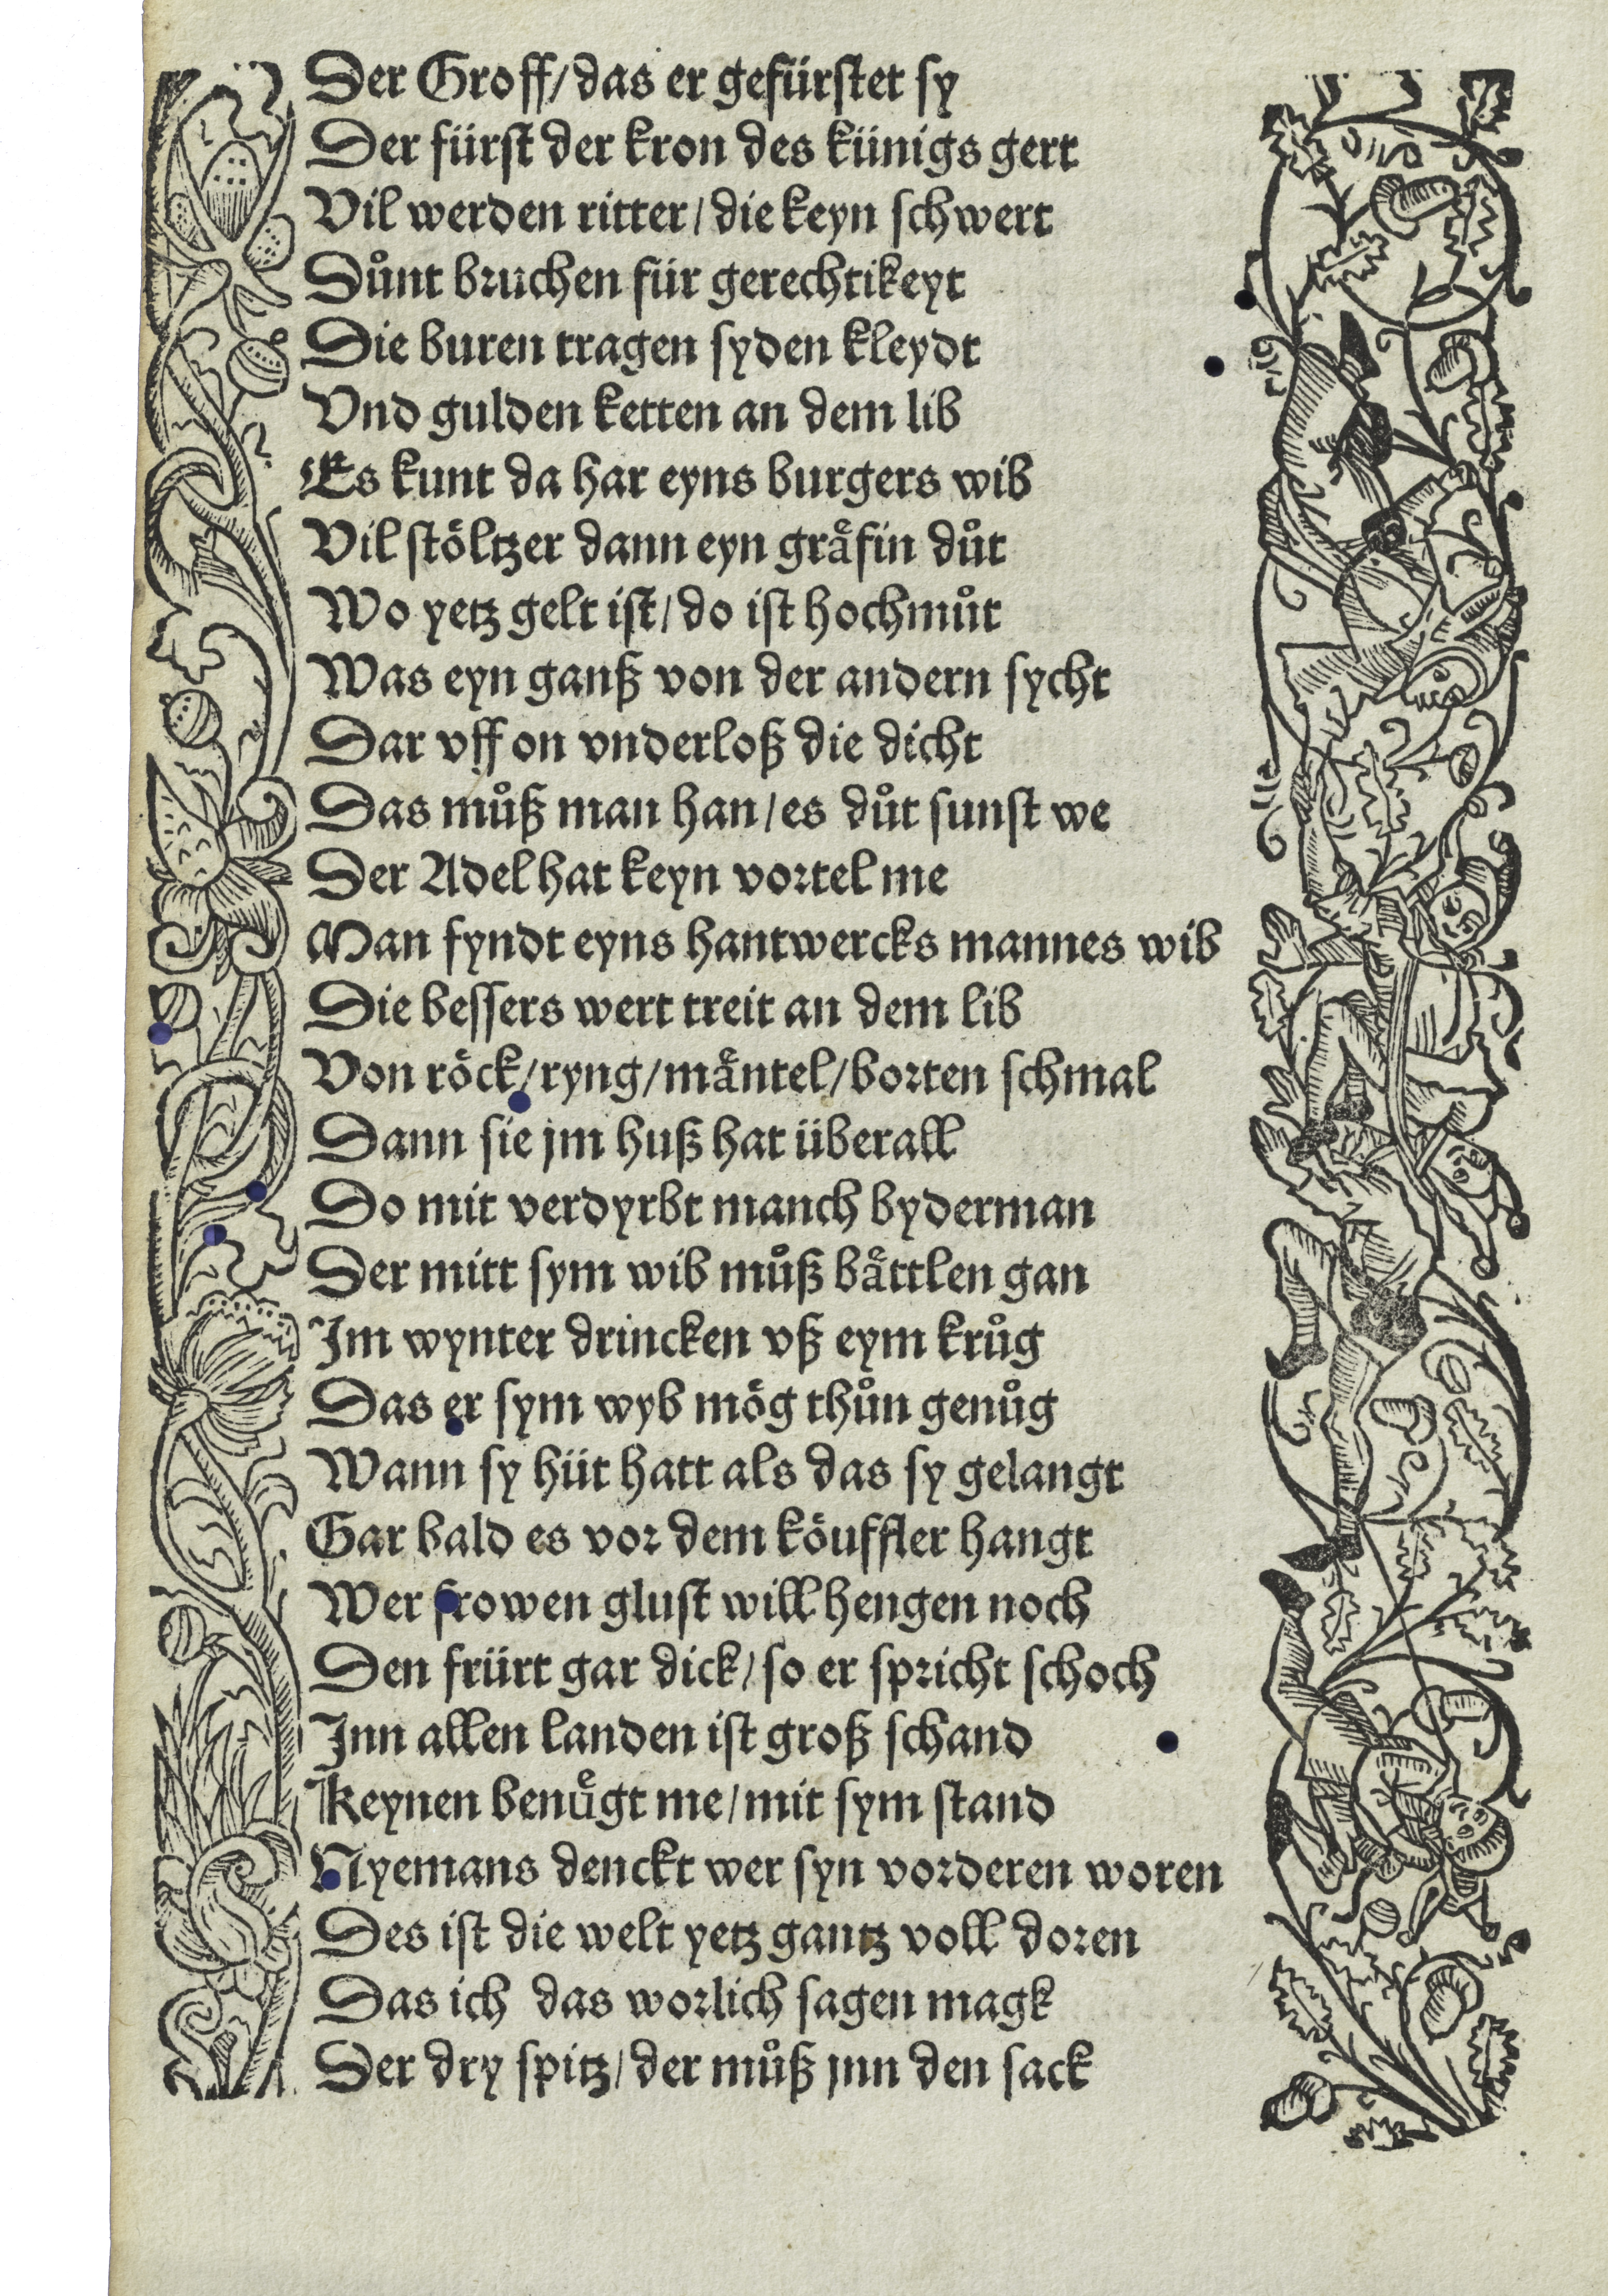 Der Groff/das er gefürstet sy
Der fürst der kron des künigs gert
Vil werden ritter/die keyn schwert
Důnt bruchen für gerechtikeyt
Die buren tragen syden kleydt
Vnd gulden ketten an dem lib
Es kunt da har eyns burgers wib
Vil stöltzer dann eyn gräfin důt
Wo yetz gelt ist/do ist hochmůt
Was eyn ganß von der andern sycht
Dar vff on vnderloß die dicht
Das můß man han/es důt sunst we
Der Adel hat keyn vortel me
Man fyndt eyns hantwercks mannes wib
Die bessers wert treit an dem lib
Von röck/ryng/mäntel/borten schmal
Dann sie jm huß hat überall
Do mit verdyrbt manch byderman
Der mitt sym wib můß bättlen gan
Im wynter drincken vß eym krůg
Das er sym wyb mög thůn genůg
Wann sy hüt hatt als das sy gelangt
Gar bald es vor dem köuffler hangt
Wer frowen glust will hengen noch
Den frürt gar dick/so er spricht schoch
Inn allen landen ist groß schand
Keynen benügt me/mit sym stand
Nyemans denckt wer syn vorderen woren
Des ist die welt yetz gantz voll doren
Das ich das worlich sagen magk
Der dry spitz/der můß jnn den sack